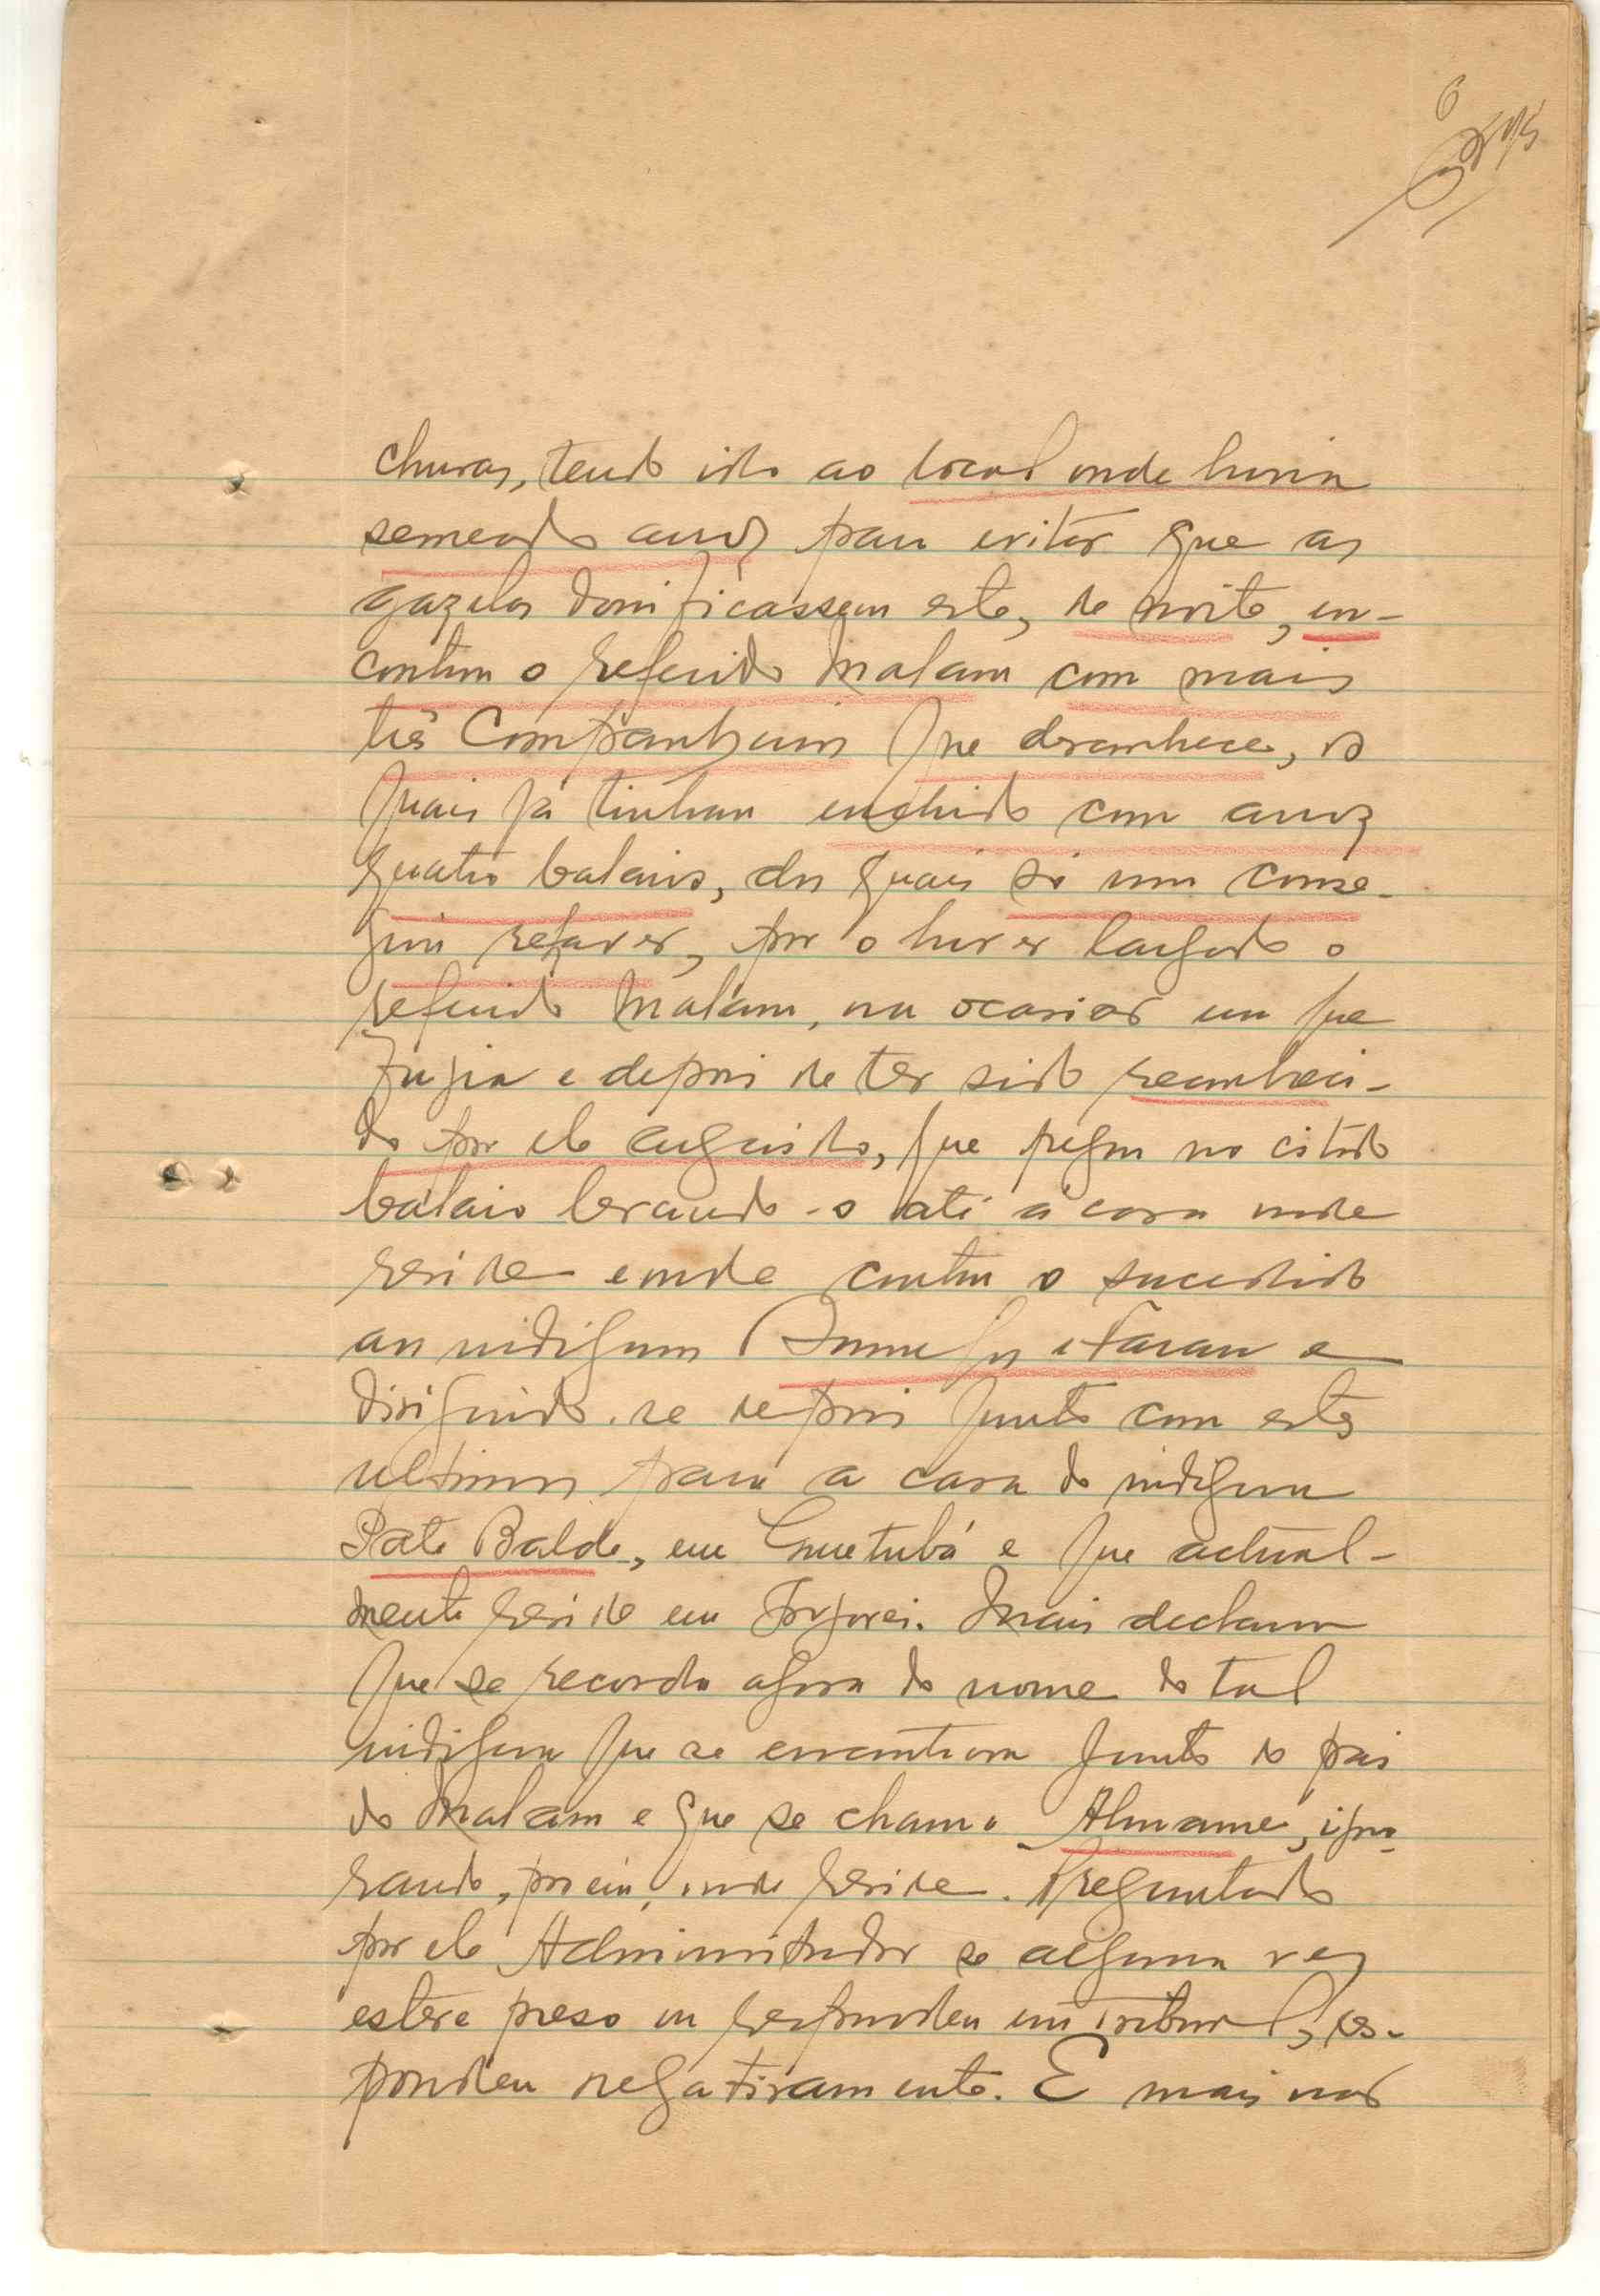 6
chuvas, tendo ido ao local onde havia
semeado arroz para evitar que as
gazelas danificassem este, de noite, en-
controu o referido Malam com mais
três companheiros que desconhece, os
quais já tinham enchido com arroz
quatro balaios, dos quais só um conse-
guiu rehaver, por o haver largado o
referido Malam, na ocasião em que
fugia e depois de ter sido reconheci-
do por ele arguido, que pegou no citado
balaio levando-o até á casa onde
reside e onde contou o sucedido
aos indigenas e
dirigindo-se depois junto com estes
ultimos para a casa do indigena
Pate Balde, em Cuetubá e que actual-
mente reside em. Mais declarou
que se recorda agora do nome do tal
indigena que se encontrava junto do pai
do Malam e que se chama Almame, igno-
rando, porém, onde reside. Preguntado
por ele Administrador se alguma vez
esteve preso ou respondeu em tribunal, res-
pondeu negativamente. E mais não